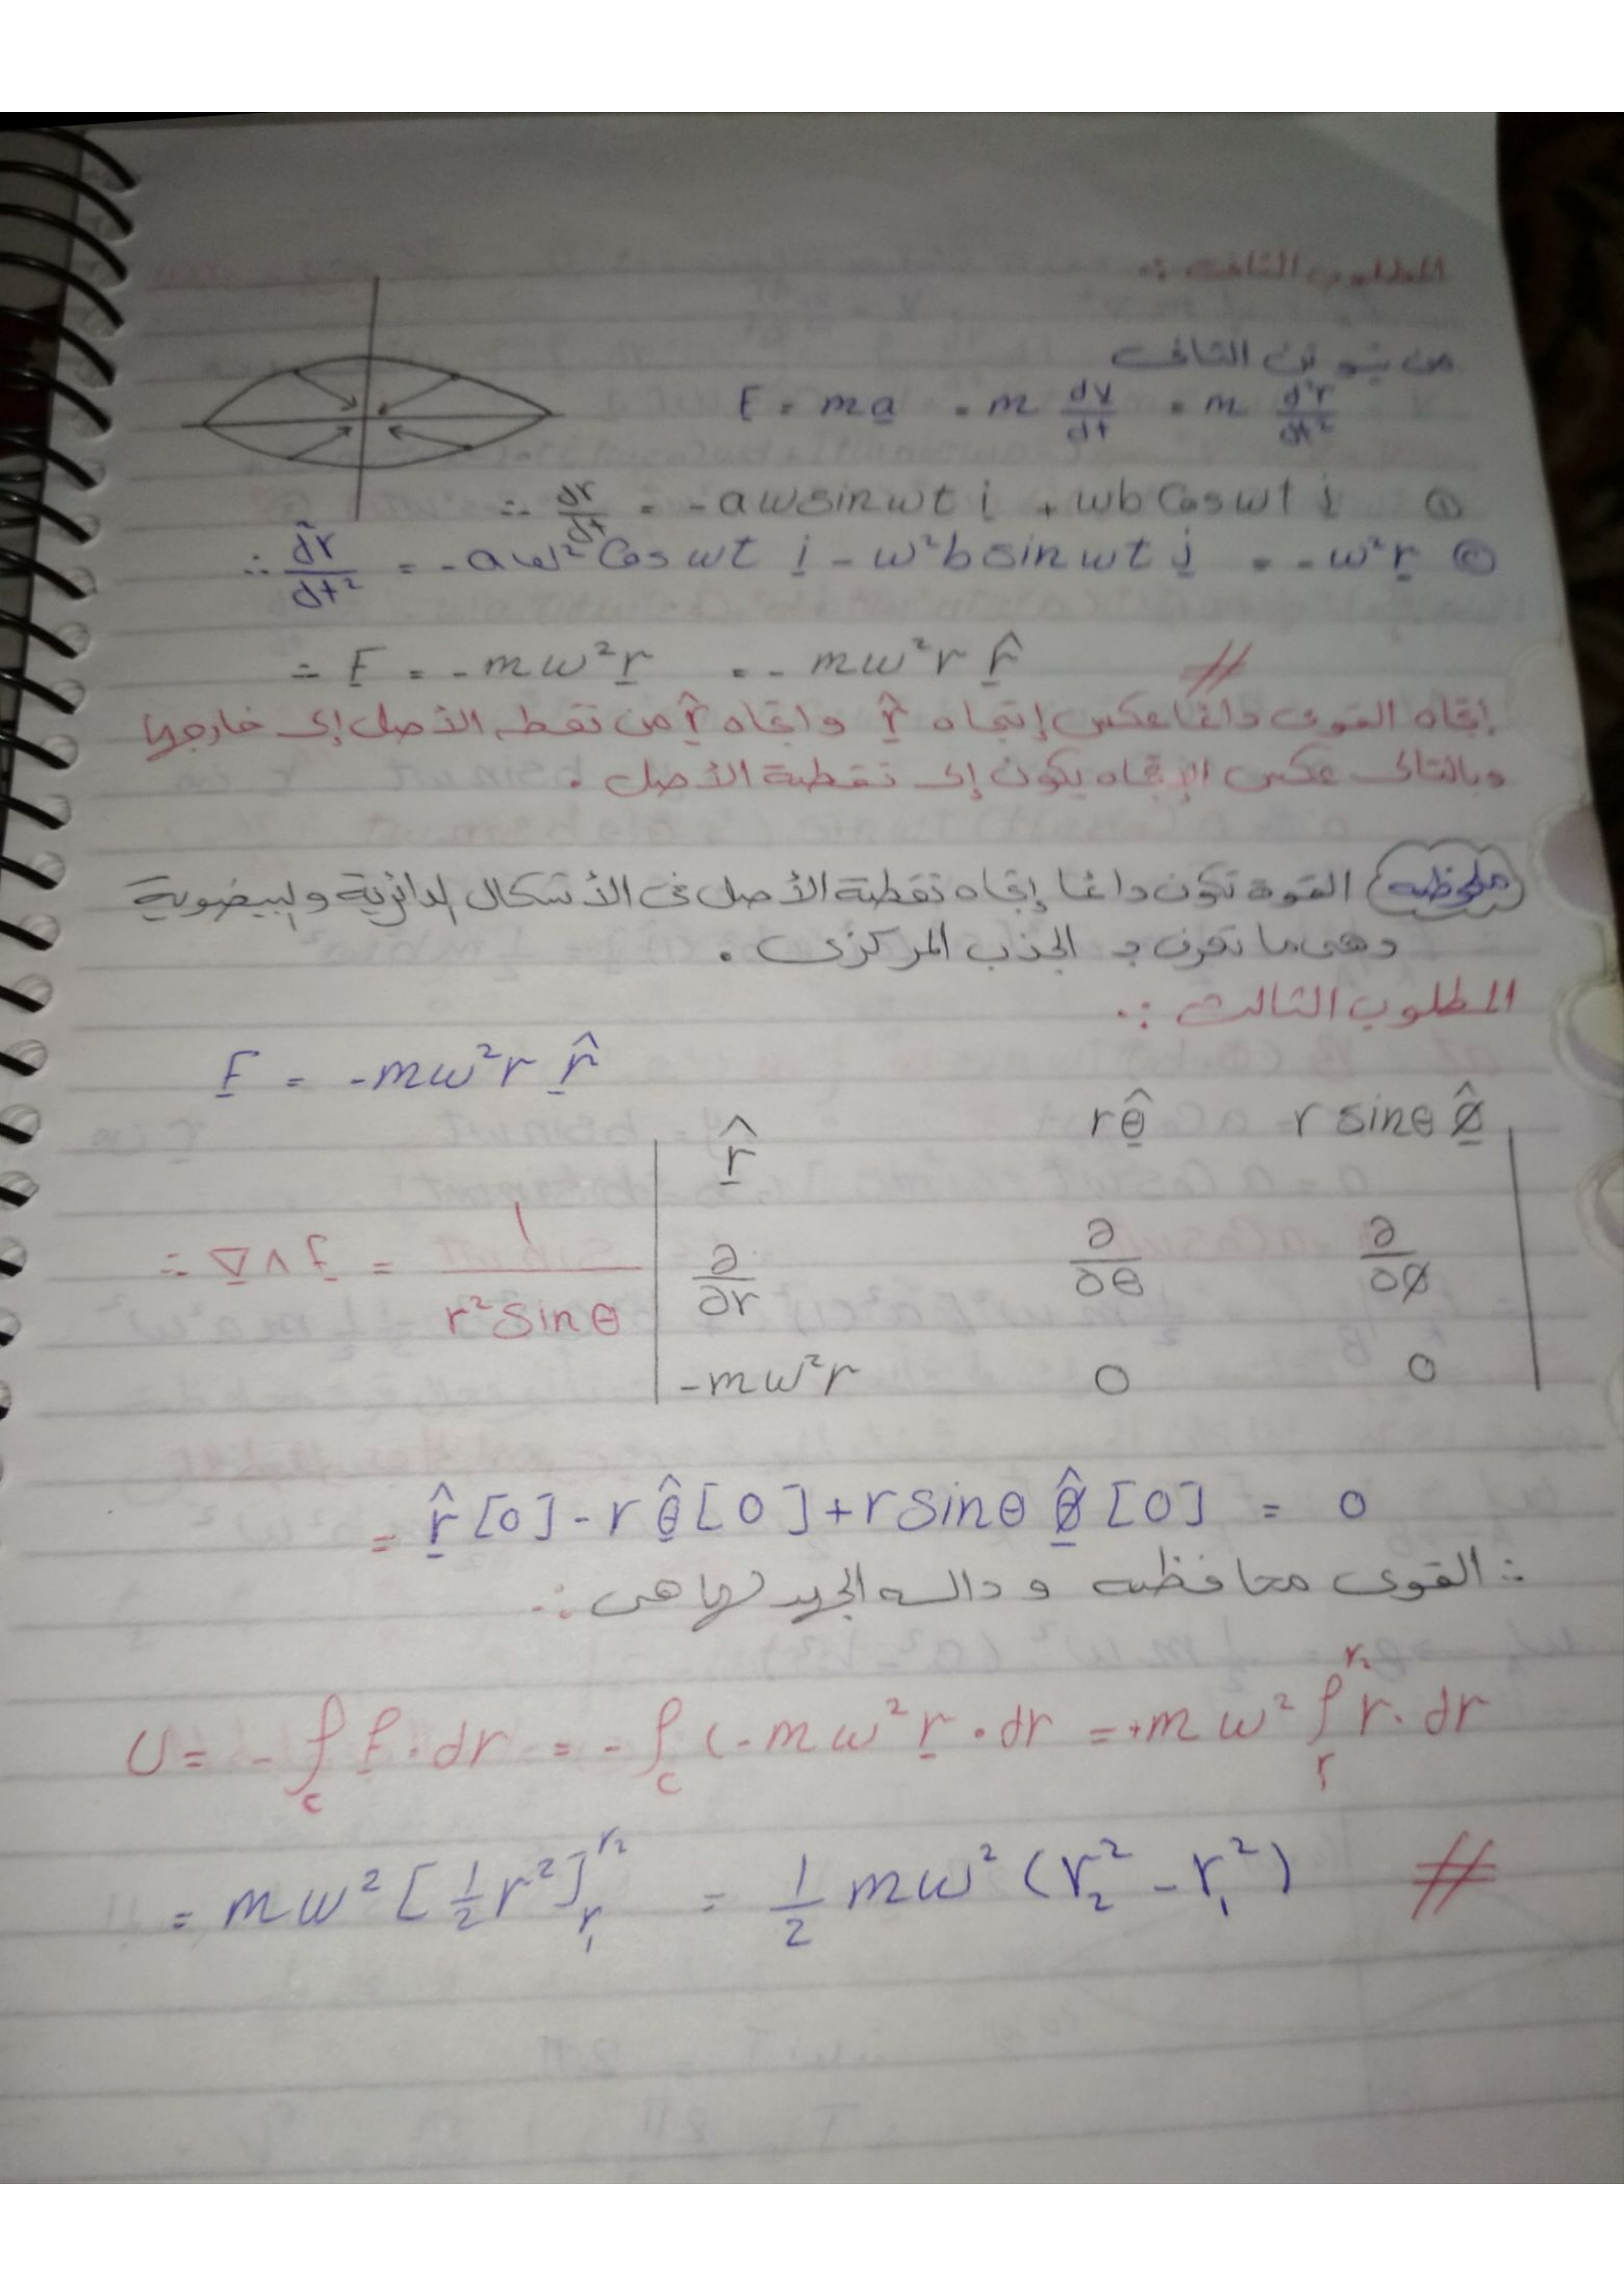 المطلوب الثانى :.
من نيوتن الثانى
F = ma = m dv/dt = m d²r/dt²
∴ dr/dt = -aw sin wt i + wb Cos wt j ①
∴ d²r/dt² = -aw² Cos wt i - w²b sin wt j = -w²r ②
∴ F = -mw²r = -mw²r r̂ #
إتجاه القوى دائما عكس إتجاه r̂ واتجاه r̂ من نقطه الأصل إلى خارجها
وبالتالى عكس الإتجاه يكون إلى نقطة الأصل .
ملحوظه القوة تكون دائما إتجاه نقطة الأصل فى الأشكال الدائرية والبيضوية
وهى ما تعرف بـ الجذب المركزى .
المطلوب الثالث :.
F = -mw²r r̂
r̂ rθ̂ r sinθ φ̂
∴ ∇∧F = 1/(r² sinθ) | ∂/∂r ∂/∂θ ∂/∂φ |
-mw²r 0 0
= r̂[0] - r θ̂[0] + r sinθ φ̂[0] = 0
∴ القوى محافظه و داله الجهد لها هى :.
U = -∫c F . dr = -∫c (-mw²r . dr = +mw² ∫r^r₂ r . dr
= mw² [½r²]r₁^r₂ = ½ mw² (r₂² - r₁²) #